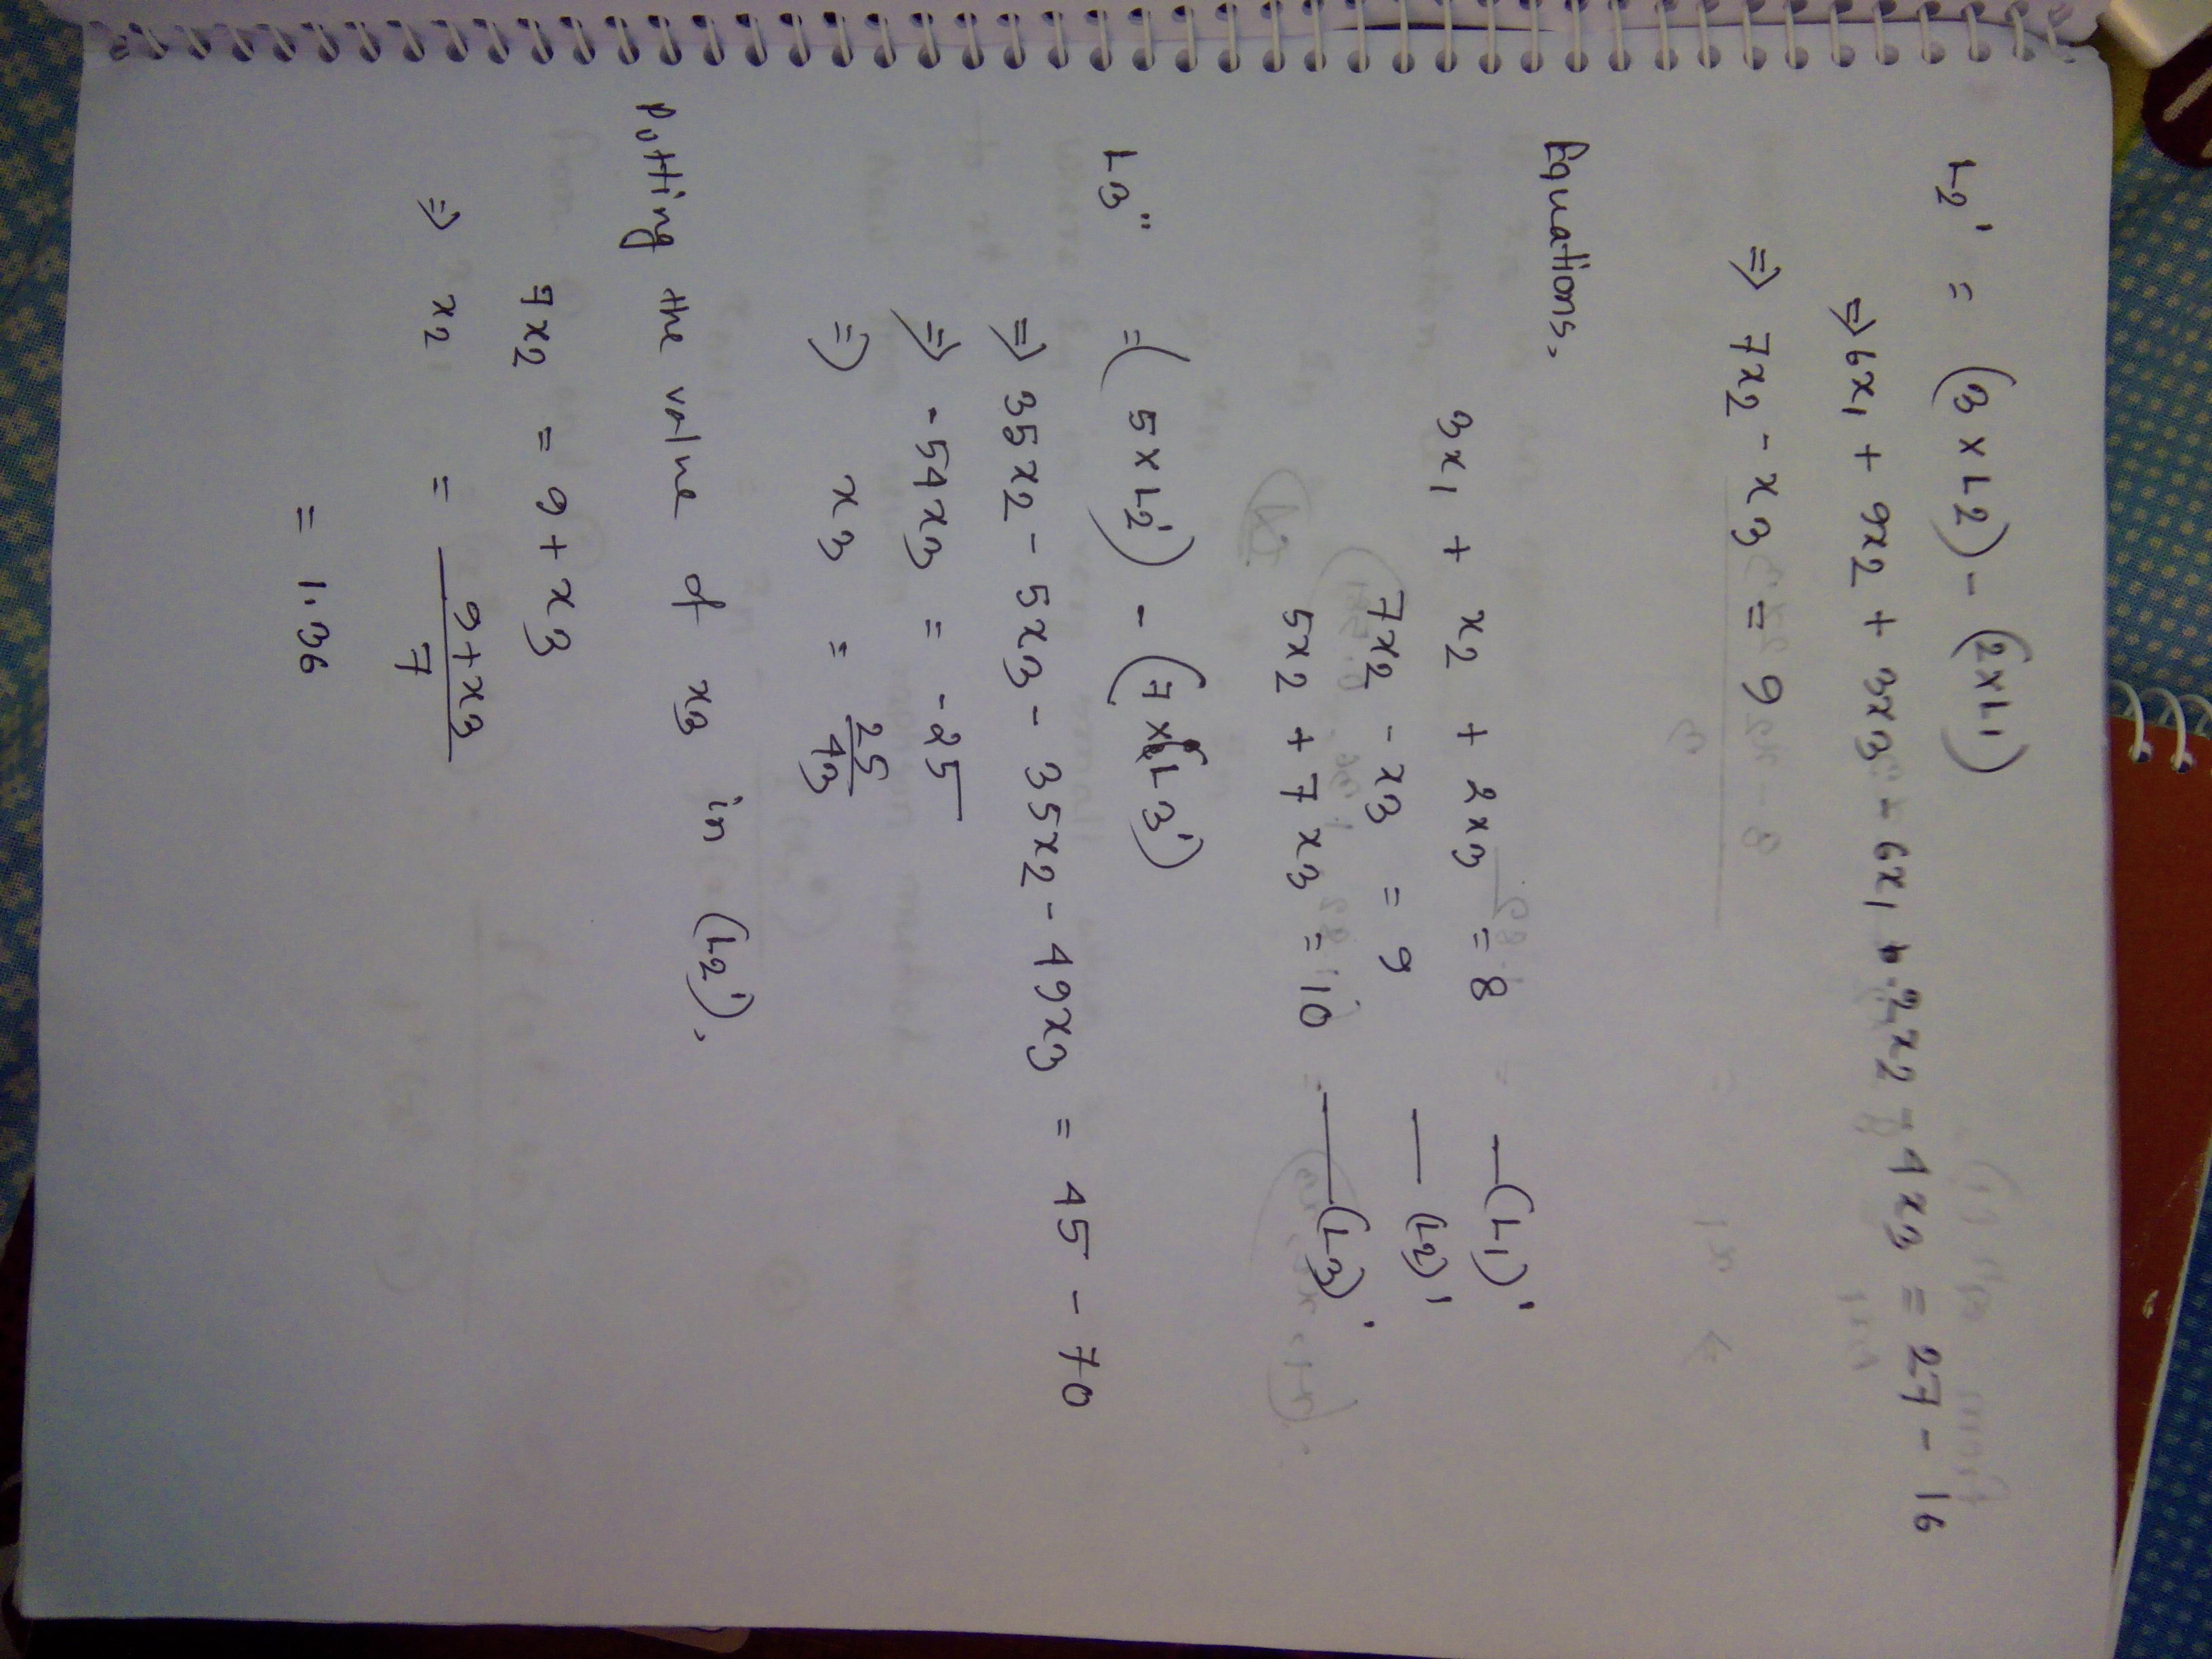 L2' = (3 x L2) - (2xL1)
⇒ 6x1 + 9x2 + 3x3 - 6x1 + 2x2 - 4x3 = 27 - 16
⇒ 7x2 - x3 = 9
Equations,
3x1 + x2 + 2x3 = 8 —(L1)'
7x2 - x3 = 9 —(L2)'
5x2 + 7x3 = 10 —(L3)'
L3" = (5 x L2') - (7 x L3')
⇒ 35x2 - 5x3 - 35x2 - 49x3 = 45 - 70
⇒ -54x3 = -25
⇒ x3 = 25/43
Putting the value of x3 in (L2'),
7x2 = 9 + x3
⇒ x2 = 9+x3/7
= 1.36